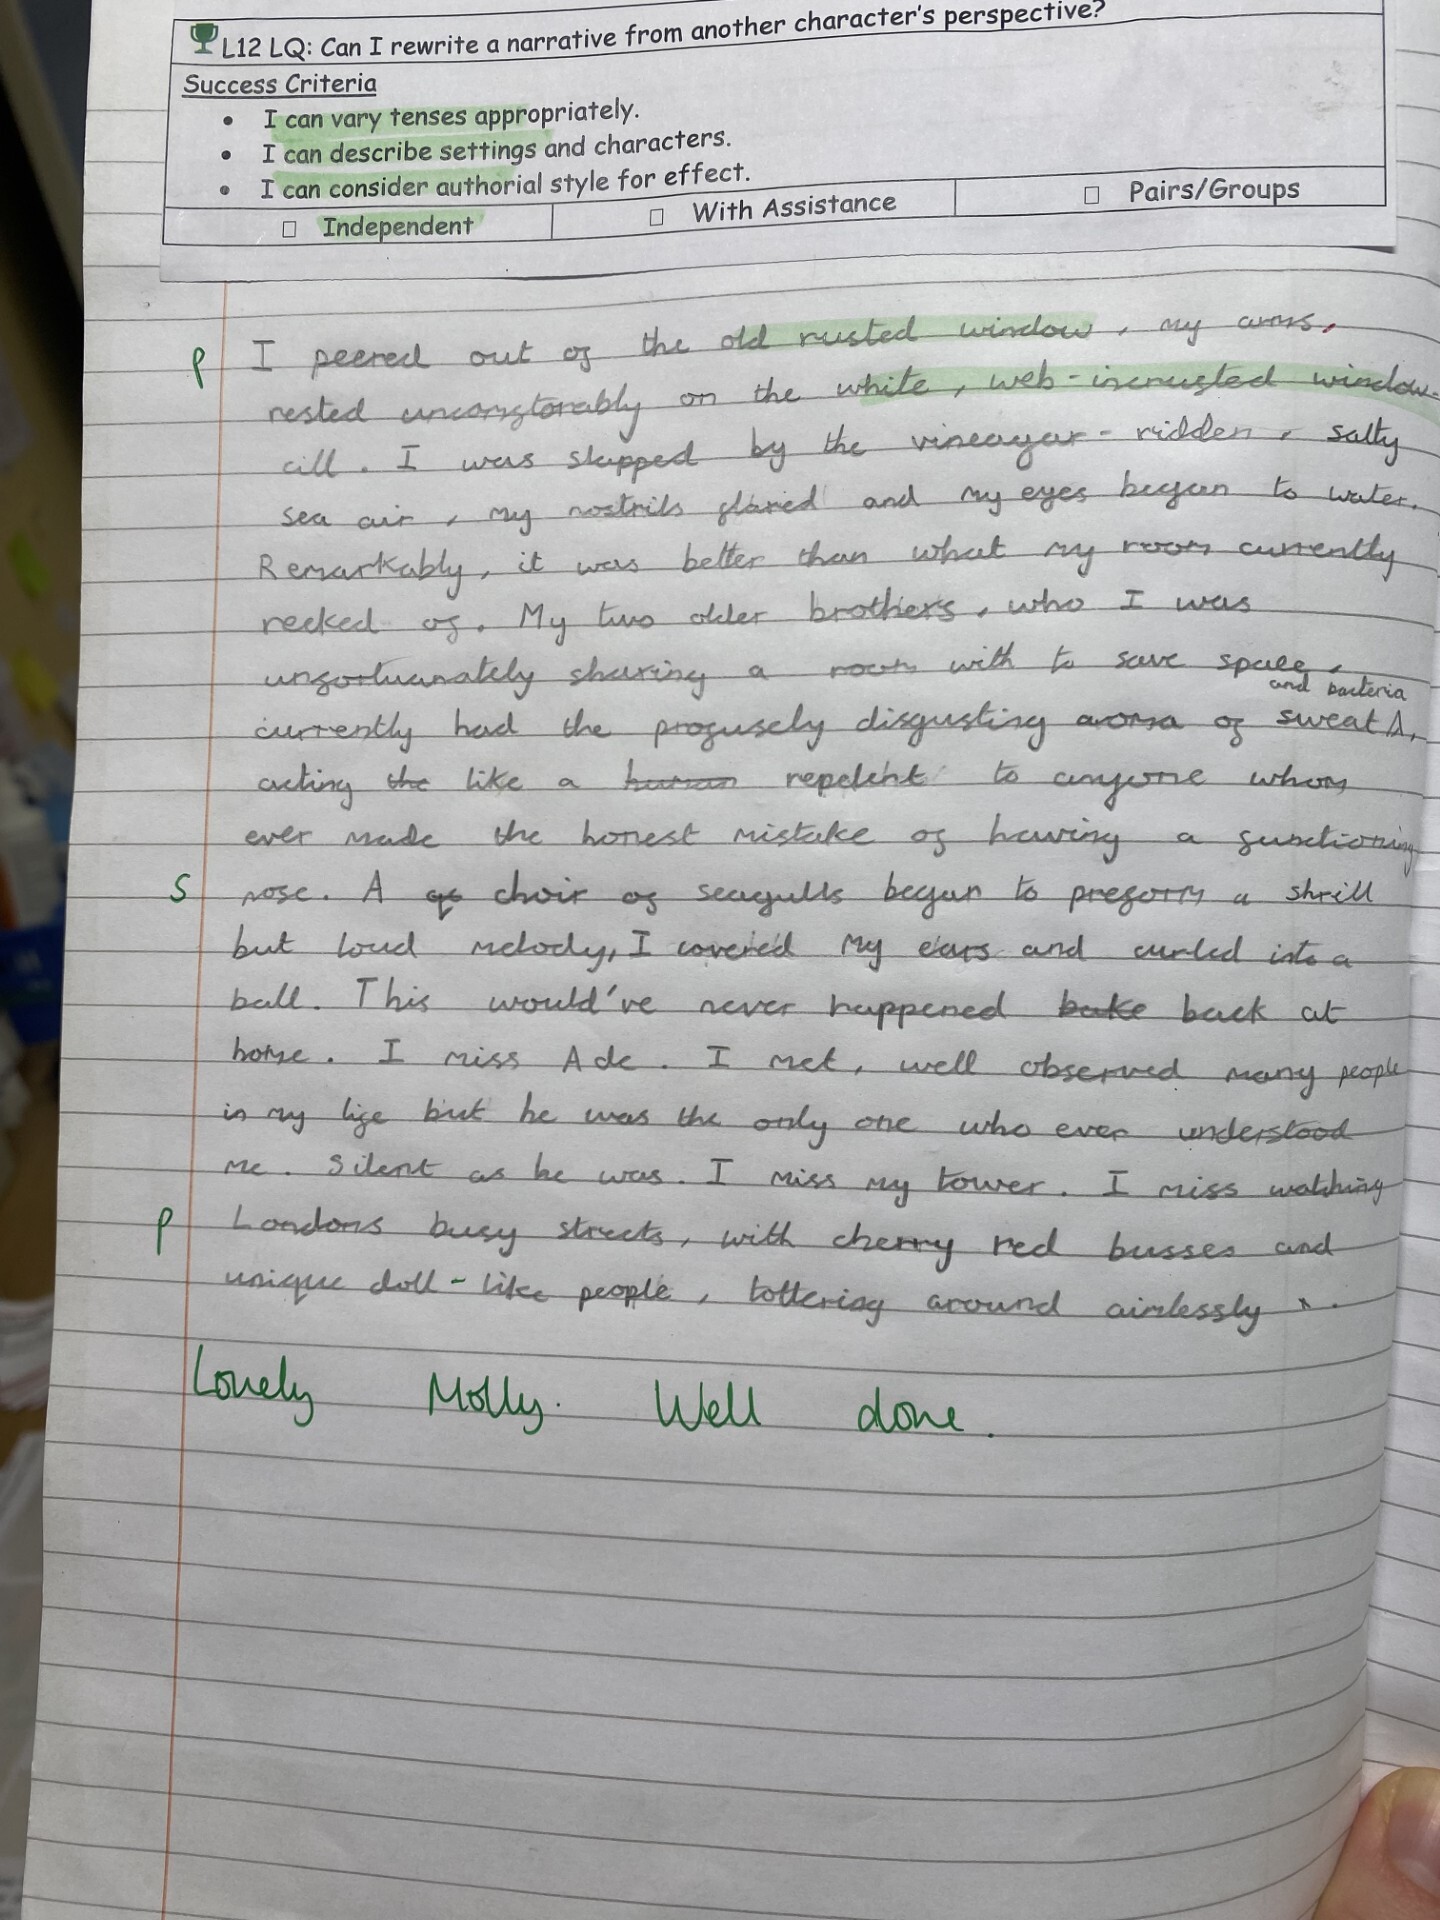 L12 LQ: Can I rewrite a narrative from another character's perspective?
Success Criteria
• I can vary tenses appropriately.
• I can describe settings and characters.
• I can consider authorial style for effect.
☐ Independent ☐ With Assistance ☐ Pairs/Groups
P I peered out of the old rusted window, my arms,
rested uncomftorably on the white, web-incrusted window-
cill. I was slapped by the vineagar-ridden, salty
sea air, my nostrils flared and my eyes began to water.
Remarkably, it was better than what my room currently
reeked of. My two older brothers, who I was
unfortuanately sharing a room with to save space,
and bacteria
currently had the profusely disgusting aroma of sweat Λ,
acting the like a human repelent to anyone whom
ever made the honest mistake of having a functioning
S nose. A choir of seagulls began to preform a shrill
but loud melody, I covered my ears and curled into a
ball. This would've never happened bake back at
home. I miss Ade. I met, well observed many people
in my life but he was the only one who ever understood
me. Silent as he was. I miss my tower. I miss watching
P Londons busy streets, with cherry red busses and
unique doll-like people, tottering around aimlessly.
Lovely Molly. Well done.